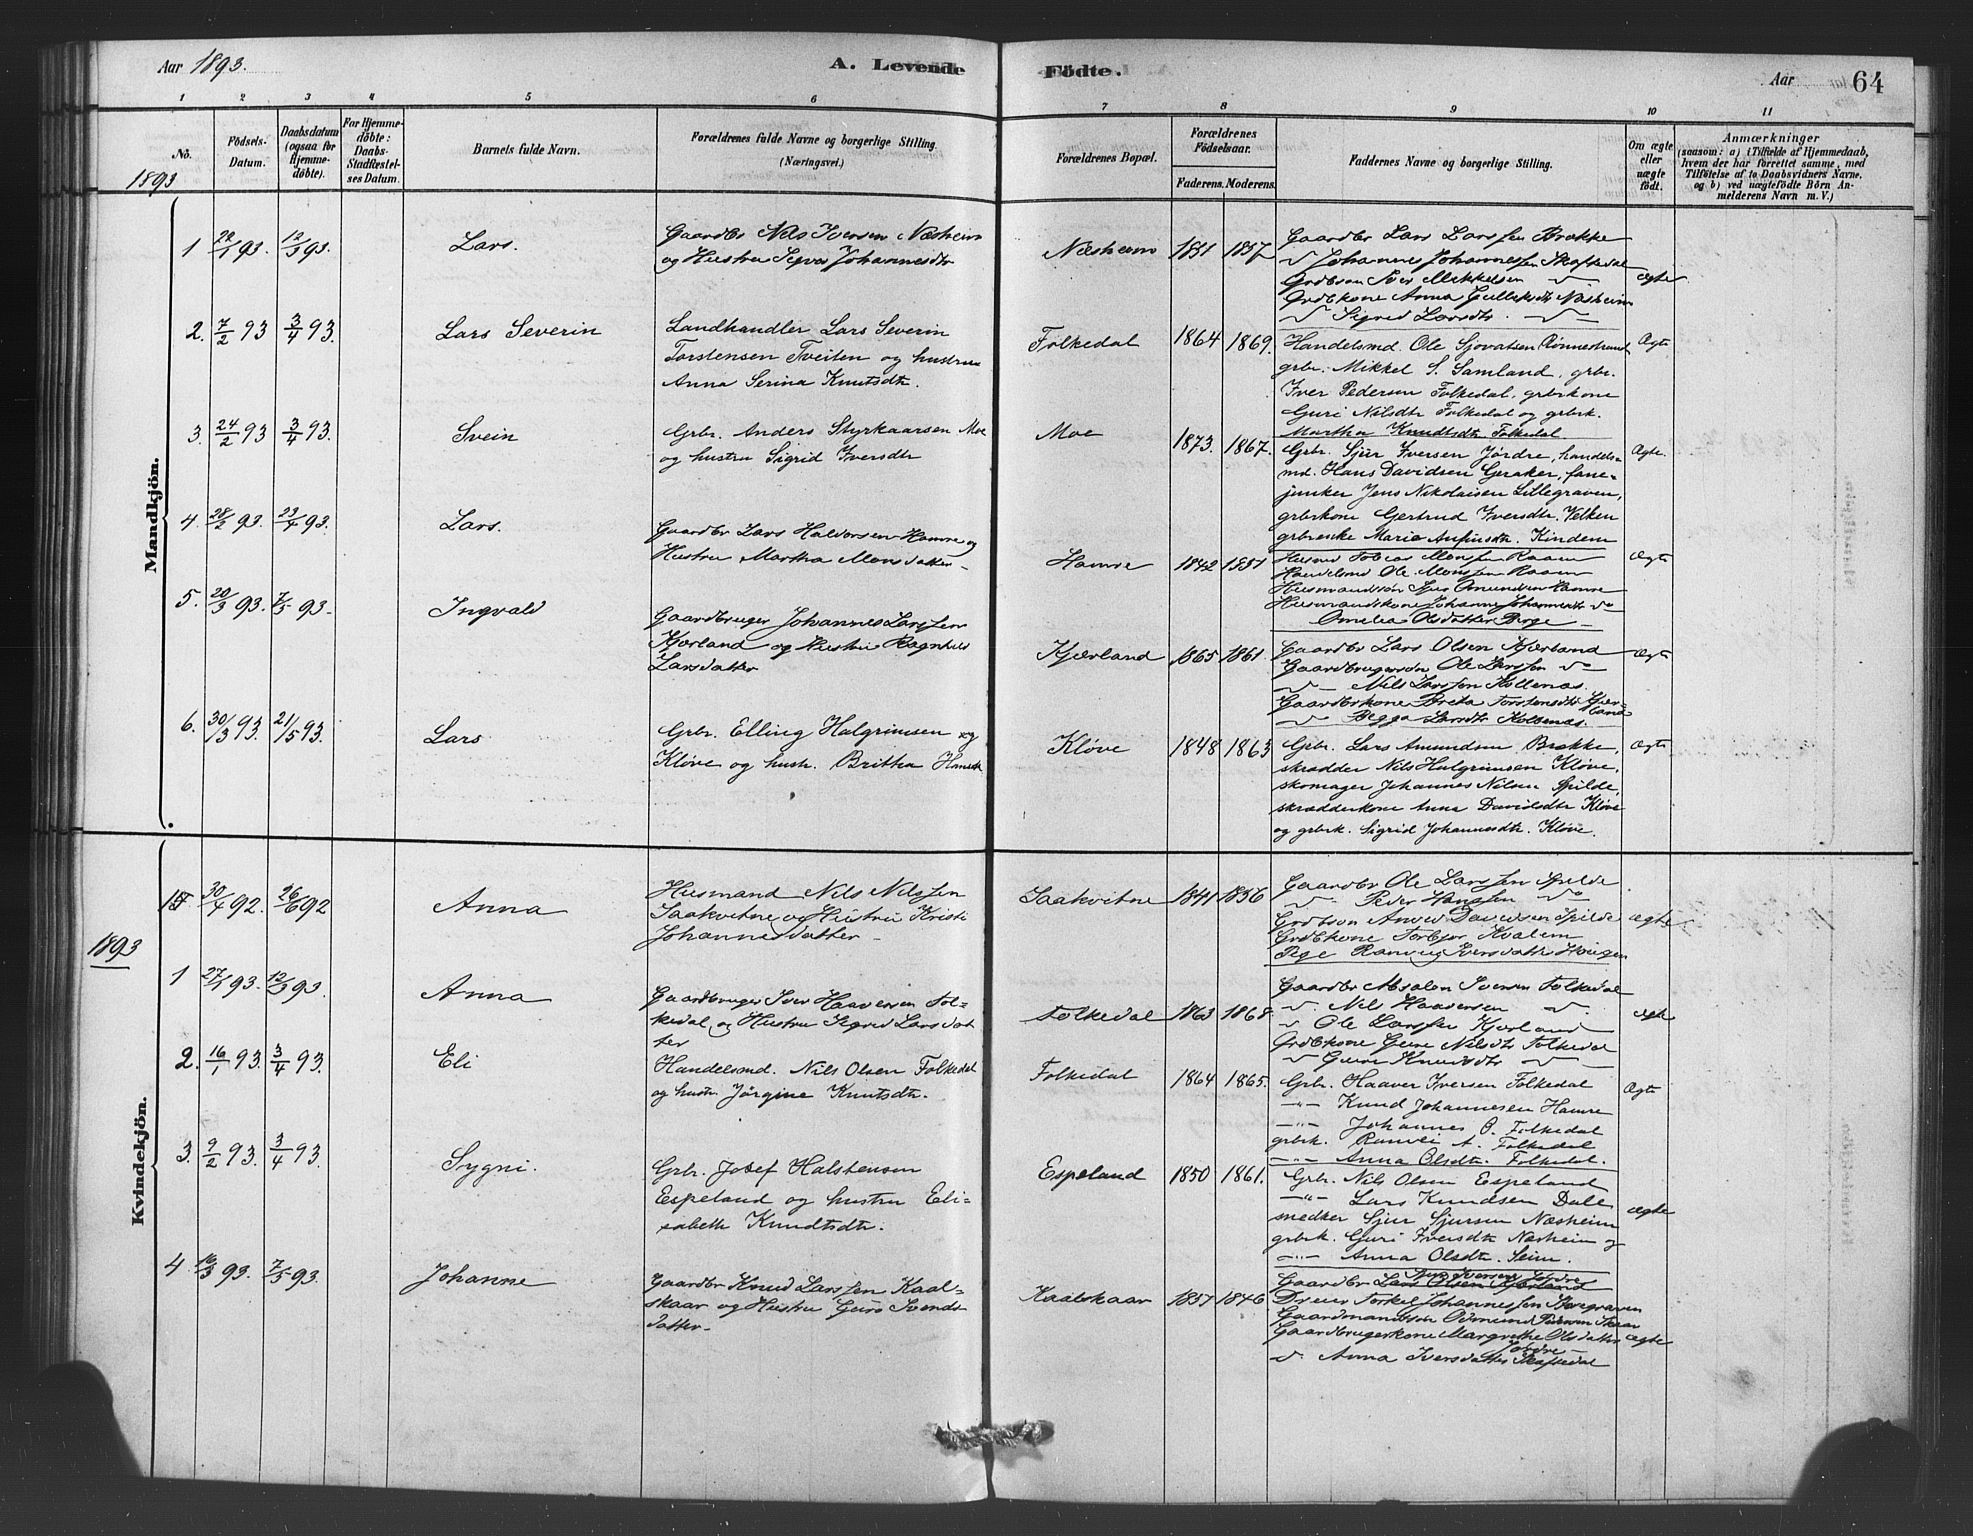 Aar 1893. A. Levende Födte. Aar 64
1 2 3 4 5 6 7 8 9 10 11
No. Födsels-Datum. Daabsdatum (ogsaa for Hjemmedöbte). For Hjemmedöbte: Daabs-Stadfæstelses Datum. Barnets fulde Navn. Forældrenes fulde Navne og borgerlige Stilling. (Næringsvei.) Forældrenes Bopæl. Forældrenes Födselsaar. Faderens. Moderens. Faddernes Navne og borgerlige Stilling. Om ægte eller uægte födt. Anmærkninger (saasom: a) i Tilfælde af Hjemmedaab, hvem der har forrettet samme, med Tilföielse af to Daabsvidners Navne, og b) ved uægtefödte Börn Anmelderens Navn m. V.)
1893
Mandkjön.
1 22/1 93. 12/3 93. Lars.
Gaardbr Nils Iversen Næsheim
og Hustru Johannesdtr
Næsheim 1857
Gaardbr Lars Larssen Brække
Johannes Johannessen Skaftedal
Iver Mikkelsen
Anna Næsheim
Sigrid Larsdtr
ægte
2. 7/2 93 3/4 93. Lars Severin
Landhandler Lars Severin
Torstensen Tveiten og hustru
Anna Serina Knutsdtr.
Folkedal 1864 1869.
Handelsmd. Ole Sjovatsen Rönnestrand
grbr. Mikkel S. Samland, grbr.
Iver Pedersen Folkedal, grbrkone
Guri Nilsdtr Folkedal og grbrk.
Martha Knudtsdtr Folkedal
Ægte
3. 24/2 93 3/4 93. Svein
Grbr. Anders Styrkaarsen Moe
og hustru Sigrid Iversdtr
Moe 1873. 1867.
Grbr. Sjur Iversen Jördre, handels-
md. Hans Davidsen Geraker, fane-
junker Jens Nikolaisen Lillegraven,
grbrkone Gertrud Iversdtr. Velken
Maria Kindem
Ægte.
4. 28/2 93. 23/4 93. Lars.
Gaardbr Lars Haldorsen Hamre og
Hustru Martha Monsdatter
Hamre 1842 1851
Tobias Monssen Raaen
Handelsmd Ole Monssen Raaen
Husmandskone Johanne Johannesdtr
Omelia Olsdatter Berge
Ægte
5. 20/3 93. 7/5 93. Ingvald
Gaardbruger Johannes Larssen
Kjærland og Hustru Ragnhild
Larsdatter
Kjærland 1865 1861.
Gaardbr Lars Olsen Kjærland
Gaardbrugersön Ole Larssen
Nils Larssen
Gaardbrkone Torstensdtr
Larsdtr
Ægte
6. 30/3 93. 21/5 93. Lars
Grbr. Elling Halgrimsen
Klöve og hustr. Britha
Klöve 1848 1863
Grbr. Lars Amundsen Brække,
skrædder Nils Halgrimsen Klöve,
skomager Johannes Nilsen Spilde,
skrædderkone Anna Davidsdtr Klöve
og grbrk. Sigrid Johannesdtr. Klöve.
Ægte
Kvindekjön.
30/4 92. 26/6 92 Anna
Husmand Nils Nilssen
Saakvitne og Hustru Kristi
Johannesdatter
Saakvitne 1841 1856
Gaardbr Ole Larssen Spilde
Peder Hanssen
Davidsen Spilde
Kvalem
Pige Iversdatter
ægte
1893
1 27/1 93. 12/3 93. Anna
Gaardbruger Iver Haaversen Fol-
kedal og Hustru Sigrid Larsdat-
ter
Folkedal 1863 1868.
Gaardbr Absalon Iversen Folkedal
Nils Haaversen
Ole Larssen Kjærland
Nilsdtr Folkedal
Knudsdtr
ægte
2. 16/1 93. 3/4 93. Eli
Handelsmd. Nils Olsen Folkedal
og hustr. Jörgine Knutsdtr.
Folkedal 1864 1865.
Grbr. Haaver Iversen Folkedal
Knud Johannesen Hamre
Johannes O. Folkedal
grbrk. Ranvei A. Folkedal
Anna Olsdtr. Folkedal.
Ægte
3. 9/2 93. 3/4 93. Sygni.
Grbr. Josef Halstensen
Espeland og hustru Eli-
sabeth Knudtsdtr.
Espeland 1850 1861.
Grbr. Nils Olsen Espeland
Lars Knudsen Dale
Sjur Sjursen Næsheim
grbrk. Guri Iversdtr Næsheim og
Anna Olsdtr. Seim
ægte
4 93. 7/5 93. Johanne
Gaardbr Knud Larssen Kaal-
skaar og Hustru Guro Svends
datter
Kaalskaar 1857 1846
Gaardbr Lars Olsen Kjærland
Dreier Torkel Johannessen Storegraven
Gaardbrugerkone Margrethe Olsdatter
Jördre
Anna Iversdatter Skaftedal
ægte